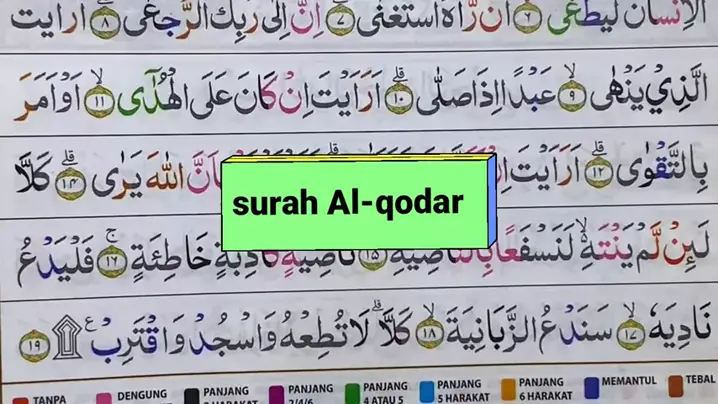 الْاِنْسَانَ لَيَطْغٰٓى ۙ ٦ اَنْ رَّاٰهُ اسْتَغْنٰىۗ ٧ اِنَّ اِلٰى رَبِّكَ الرُّجْعٰىۗ ٨ اَرَاَيْتَ
الَّذِيْ يَنْهٰىۙ ٩ عَبْدًا اِذَا صَلّٰىۗ ١٠ اَرَاَيْتَ اِنْ كَانَ عَلَى الْهُدٰىٓۙ ١١ اَوْ اَمَرَ
بِالتَّقْوٰىۗ ١٢ اَرَاَيْتَ اِنْ بِاَنَّ اللّٰهَ يَرٰىۗ ١٤ كَلَّا
surah Al-qodar
لَىِٕنْ لَّمْ يَنْتَهِ ەۙ لَنَسْفَعًاۢ بِالنَّاصِيَةِۙ ١٥ نَاصِيَةٍ كَاذِبَةٍ خَاطِئَةٍۚ ١٦ فَلْيَدْعُ
نَادِيَهٗۙ ١٧ سَنَدْعُ الزَّبَانِيَةَۙ ١٨ كَلَّاۗ لَا تُطِعْهُ وَاسْجُدْ وَاقْتَرِبْ ۩ ١٩
TANPA DENGUNG PANJANG 2 HARAKAT PANJANG 2/4/6 PANJANG 4 ATAU 5 PANJANG 5 HARAKAT PANJANG 6 HARAKAT MEMANTUL TEBAL